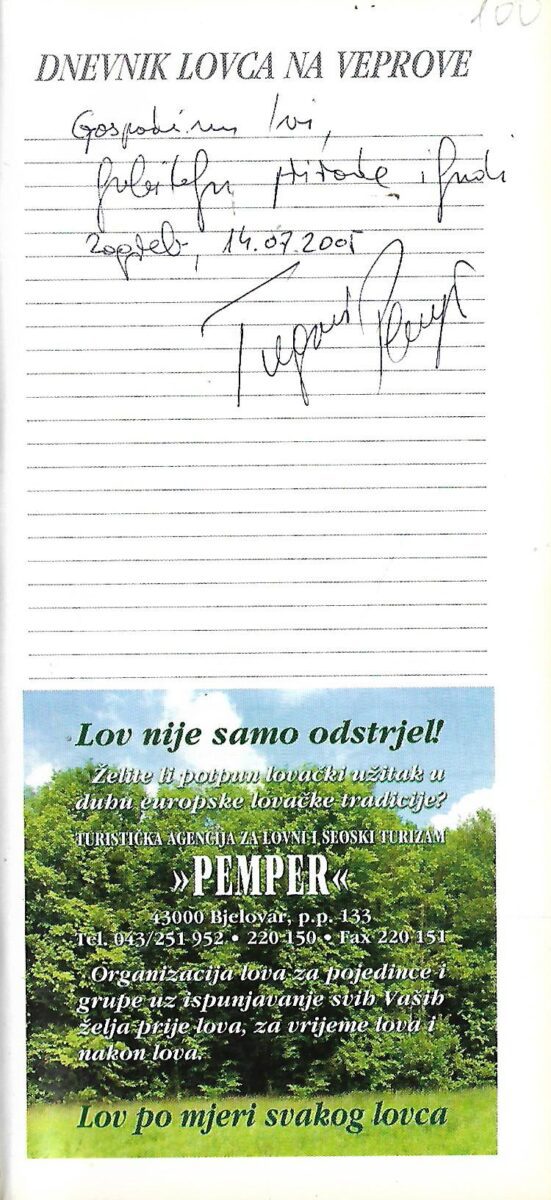 100
DNEVNIK LOVCA NA VEPROVE
Gospodinu Ivi,
ljubitelju prirode i ljudi
Zagreb, 14.07.2005
Lov nije samo odstrjel!
Želite li potpun lovački užitak u
duhu europske lovačke tradicije?
TURISTIČKA AGENCIJA ZA LOVNI I SEOSKI TURIZAM
»PEMPER«
43000 Bjelovar, p.p. 133
Tel. 043/251 952 • 220 150 • Fax 220 151
Organizacija lova za pojedince i
grupe uz ispunjavanje svih Vaših
želja prije lova, za vrijeme lova i
nakon lova.
Lov po mjeri svakog lovca